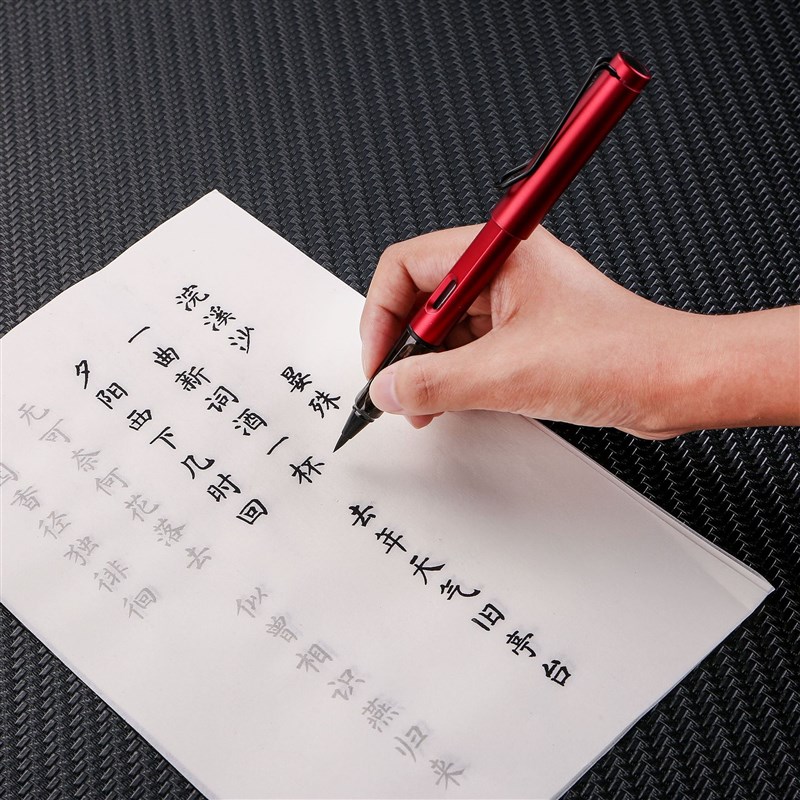 浣溪沙 晏殊
一曲新词酒一杯 去年天气旧亭台
夕阳西下几时回
无可奈何花落去 似曾相识燕归来
香径独徘徊